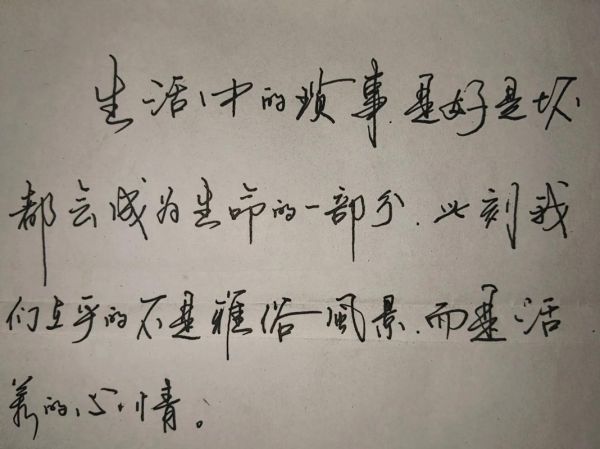 生活中的琐事.是好是坏
都会成为生命的一部分.此刻我
们在乎的不是雅俗風景.而是活
着的心情。